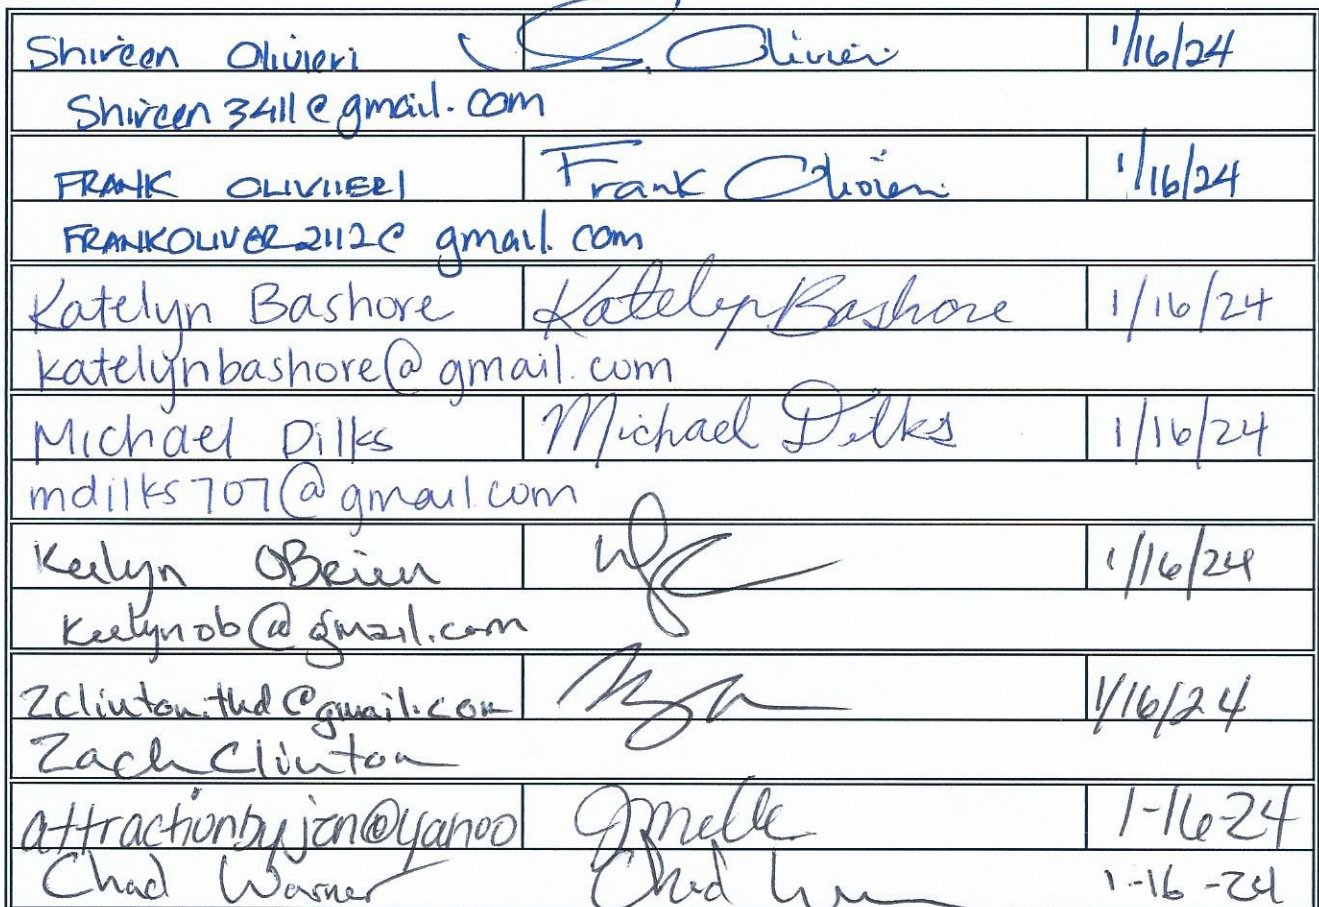 Shireen Olivieri S. Olivieri 1/16/24
Shireen3411@gmail.com
FRANK OLIVIIERI Frank Olivieri 1/16/24
FRANKOLIVER2112@gmail.com
Katelyn Bashore Katelyn Bashore 1/16/24
katelynbashore@gmail.com
Michael Dilks Michael Dilks 1/16/24
mdilks707@gmail.com
Keelyn OBrien 1/16/24
Keelynob@gmail.com
zclinton.thd@gmail.com 1/16/24
Zach Clinton
attractionbyjen@yahoo 1-16-24
Chad Warner Chad 1-16-24